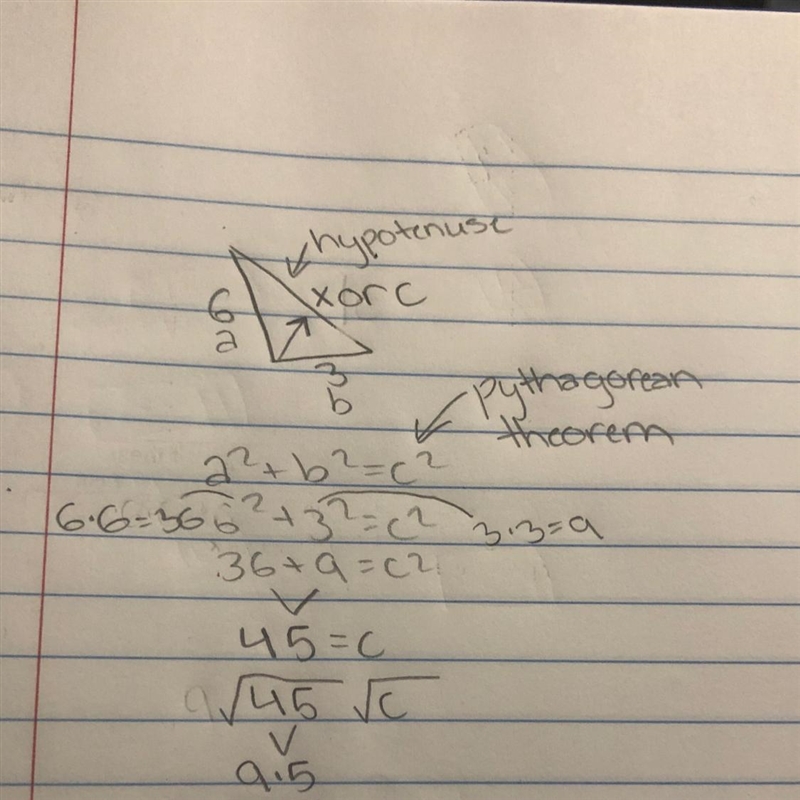 hypotenuse
6
x or c
a
3
b
pythagorean
theorem
a² + b² = c²
6·6=36 6² + 3² = c² 3·3=9
36 + 9 = c²
45 = c
√45 √c
9·5